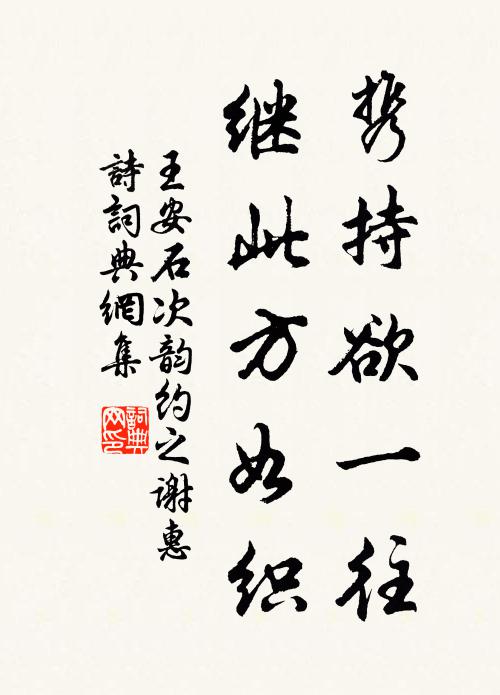 携持欲一往
继此方如织
王安石次韵约之谢惠
詩詞典網集
詞典网印